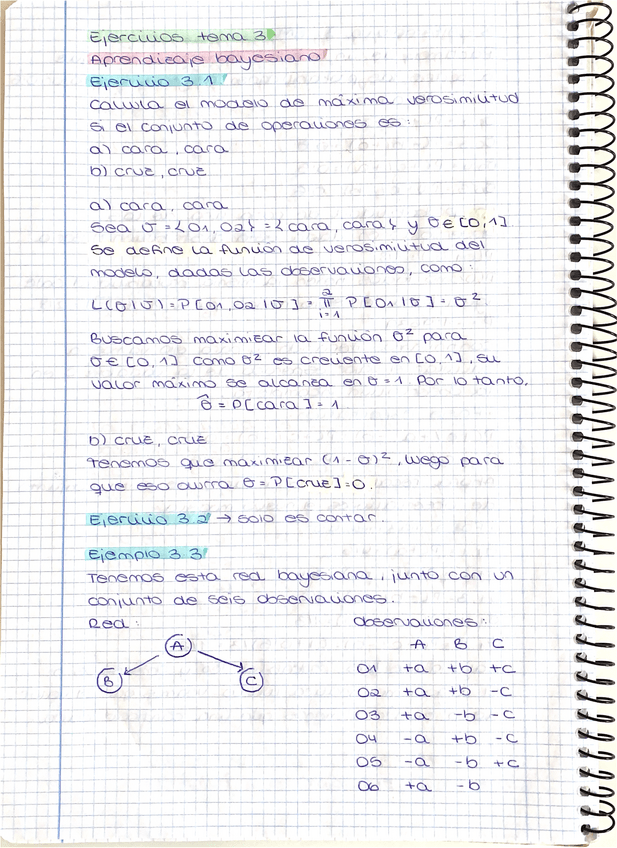 Ejercicios tema 3
Aprendizaje bayesiano
Ejercicio 3.1
Calcula el modelo de máxima verosimilitud
si el conjunto de operaciones es:
a) cara, cara
b) cruz, cruz
a) cara, cara
Sea σ = {O1, O2} = {cara, cara} y θ ∈ [0,1]
Se define la función de verosimilitud del
modelo, dadas las observaciones, como:
L(θ|σ) = P[O1, O2 | σ] = ∏ᵢ₌₁² P[O1 | σ] = θ²
Buscamos maximizar la función θ² para
θ ∈ [0,1]. Como θ² es creciente en [0,1], su
valor máximo se alcanza en θ = 1. Por lo tanto,
θ̂ = P[cara] = 1
b) cruz, cruz
Tenemos que maximizar (1 - θ)², luego para
que eso ocurra θ = P[cruz] = 0.
Ejercicio 3.2 → solo es contar.
Ejemplo 3.3
Tenemos esta red bayesiana, junto con un
conjunto de seis observaciones.
Red:
A
B C
Observaciones:
A B C
O1 +a +b +c
O2 +a +b -c
O3 +a -b -c
O4 -a +b -c
O5 -a -b +c
O6 +a -b